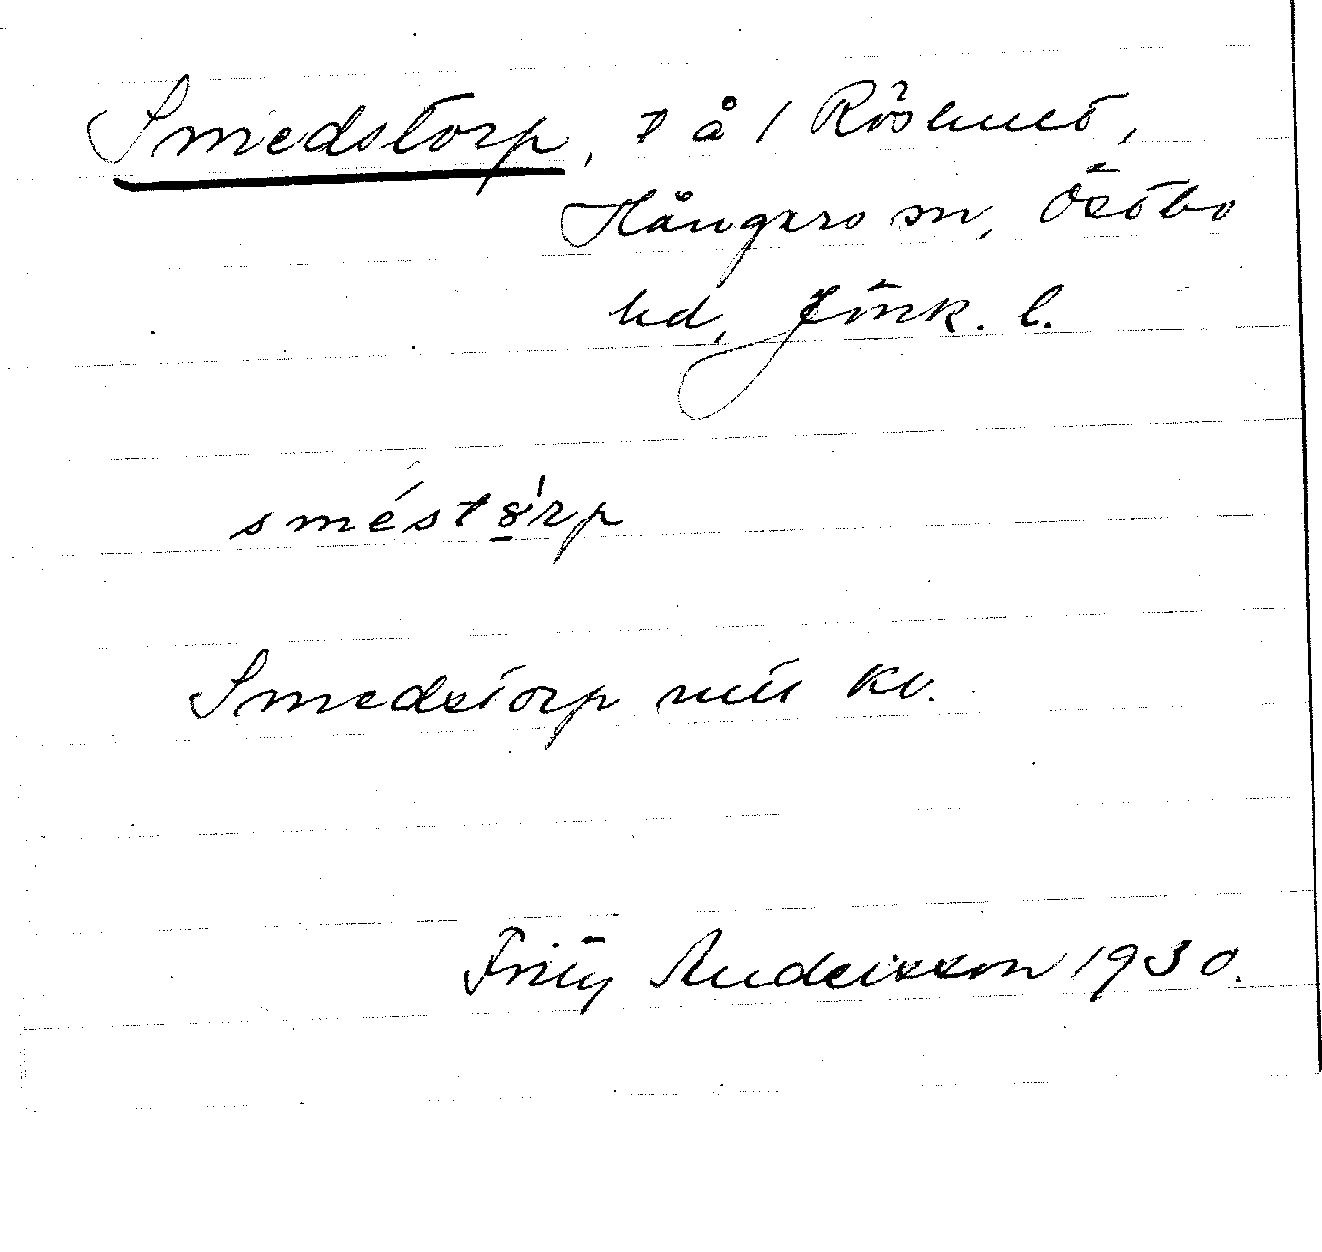 Smedstorp, t å / Röshult,
Hångers sn, Östbo
hd, Jönk. l.
sméstȣ̱̍rp
Smedstorp mtl Kv.
Fritz Andersson 1930.